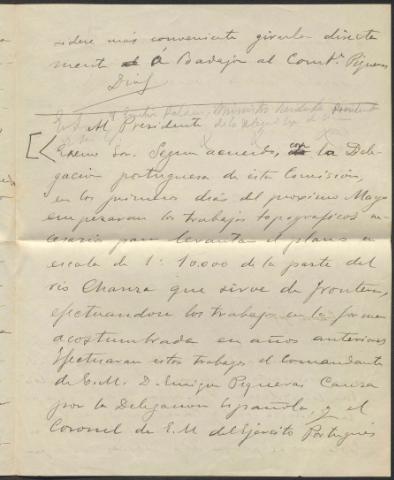 sidere más conveniente girarla directa
mente á Badajoz al Comte. Piqueras
Diaz
Al Presidente de la
Excmo Sor. Segun acuerdo, con la Dele-
gacion portuguesa de esta Comisión,
en los primeros dias del proximo Mayo
empezaran los trabajos topograficos ne-
cesarios para levantar el plano en
escala de 1: 10.000 de la parte del
rio Chanza que sirve de frontera,
efectuandose los trabajos en la forma
acostumbrada en años anteriores
Efectuaran estos trabajos el Comandante
de E.M. D. Enrique Piqueras Causa
por la Delegacion Española, y el
Coronel de E.M del Ejército Portugués